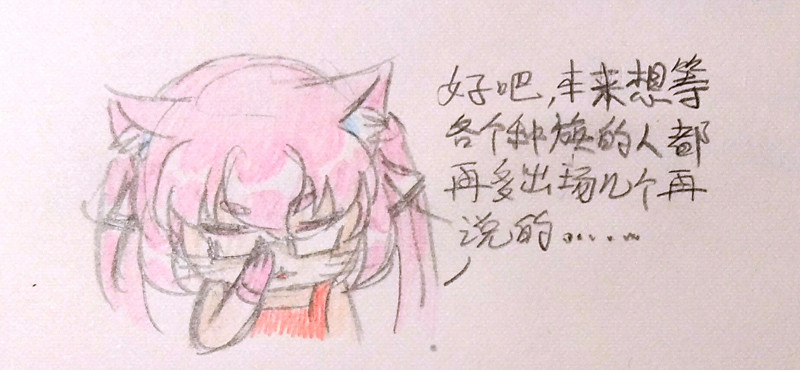 好吧,本来想等
各个种族的人都
再多出场几个再
说的......